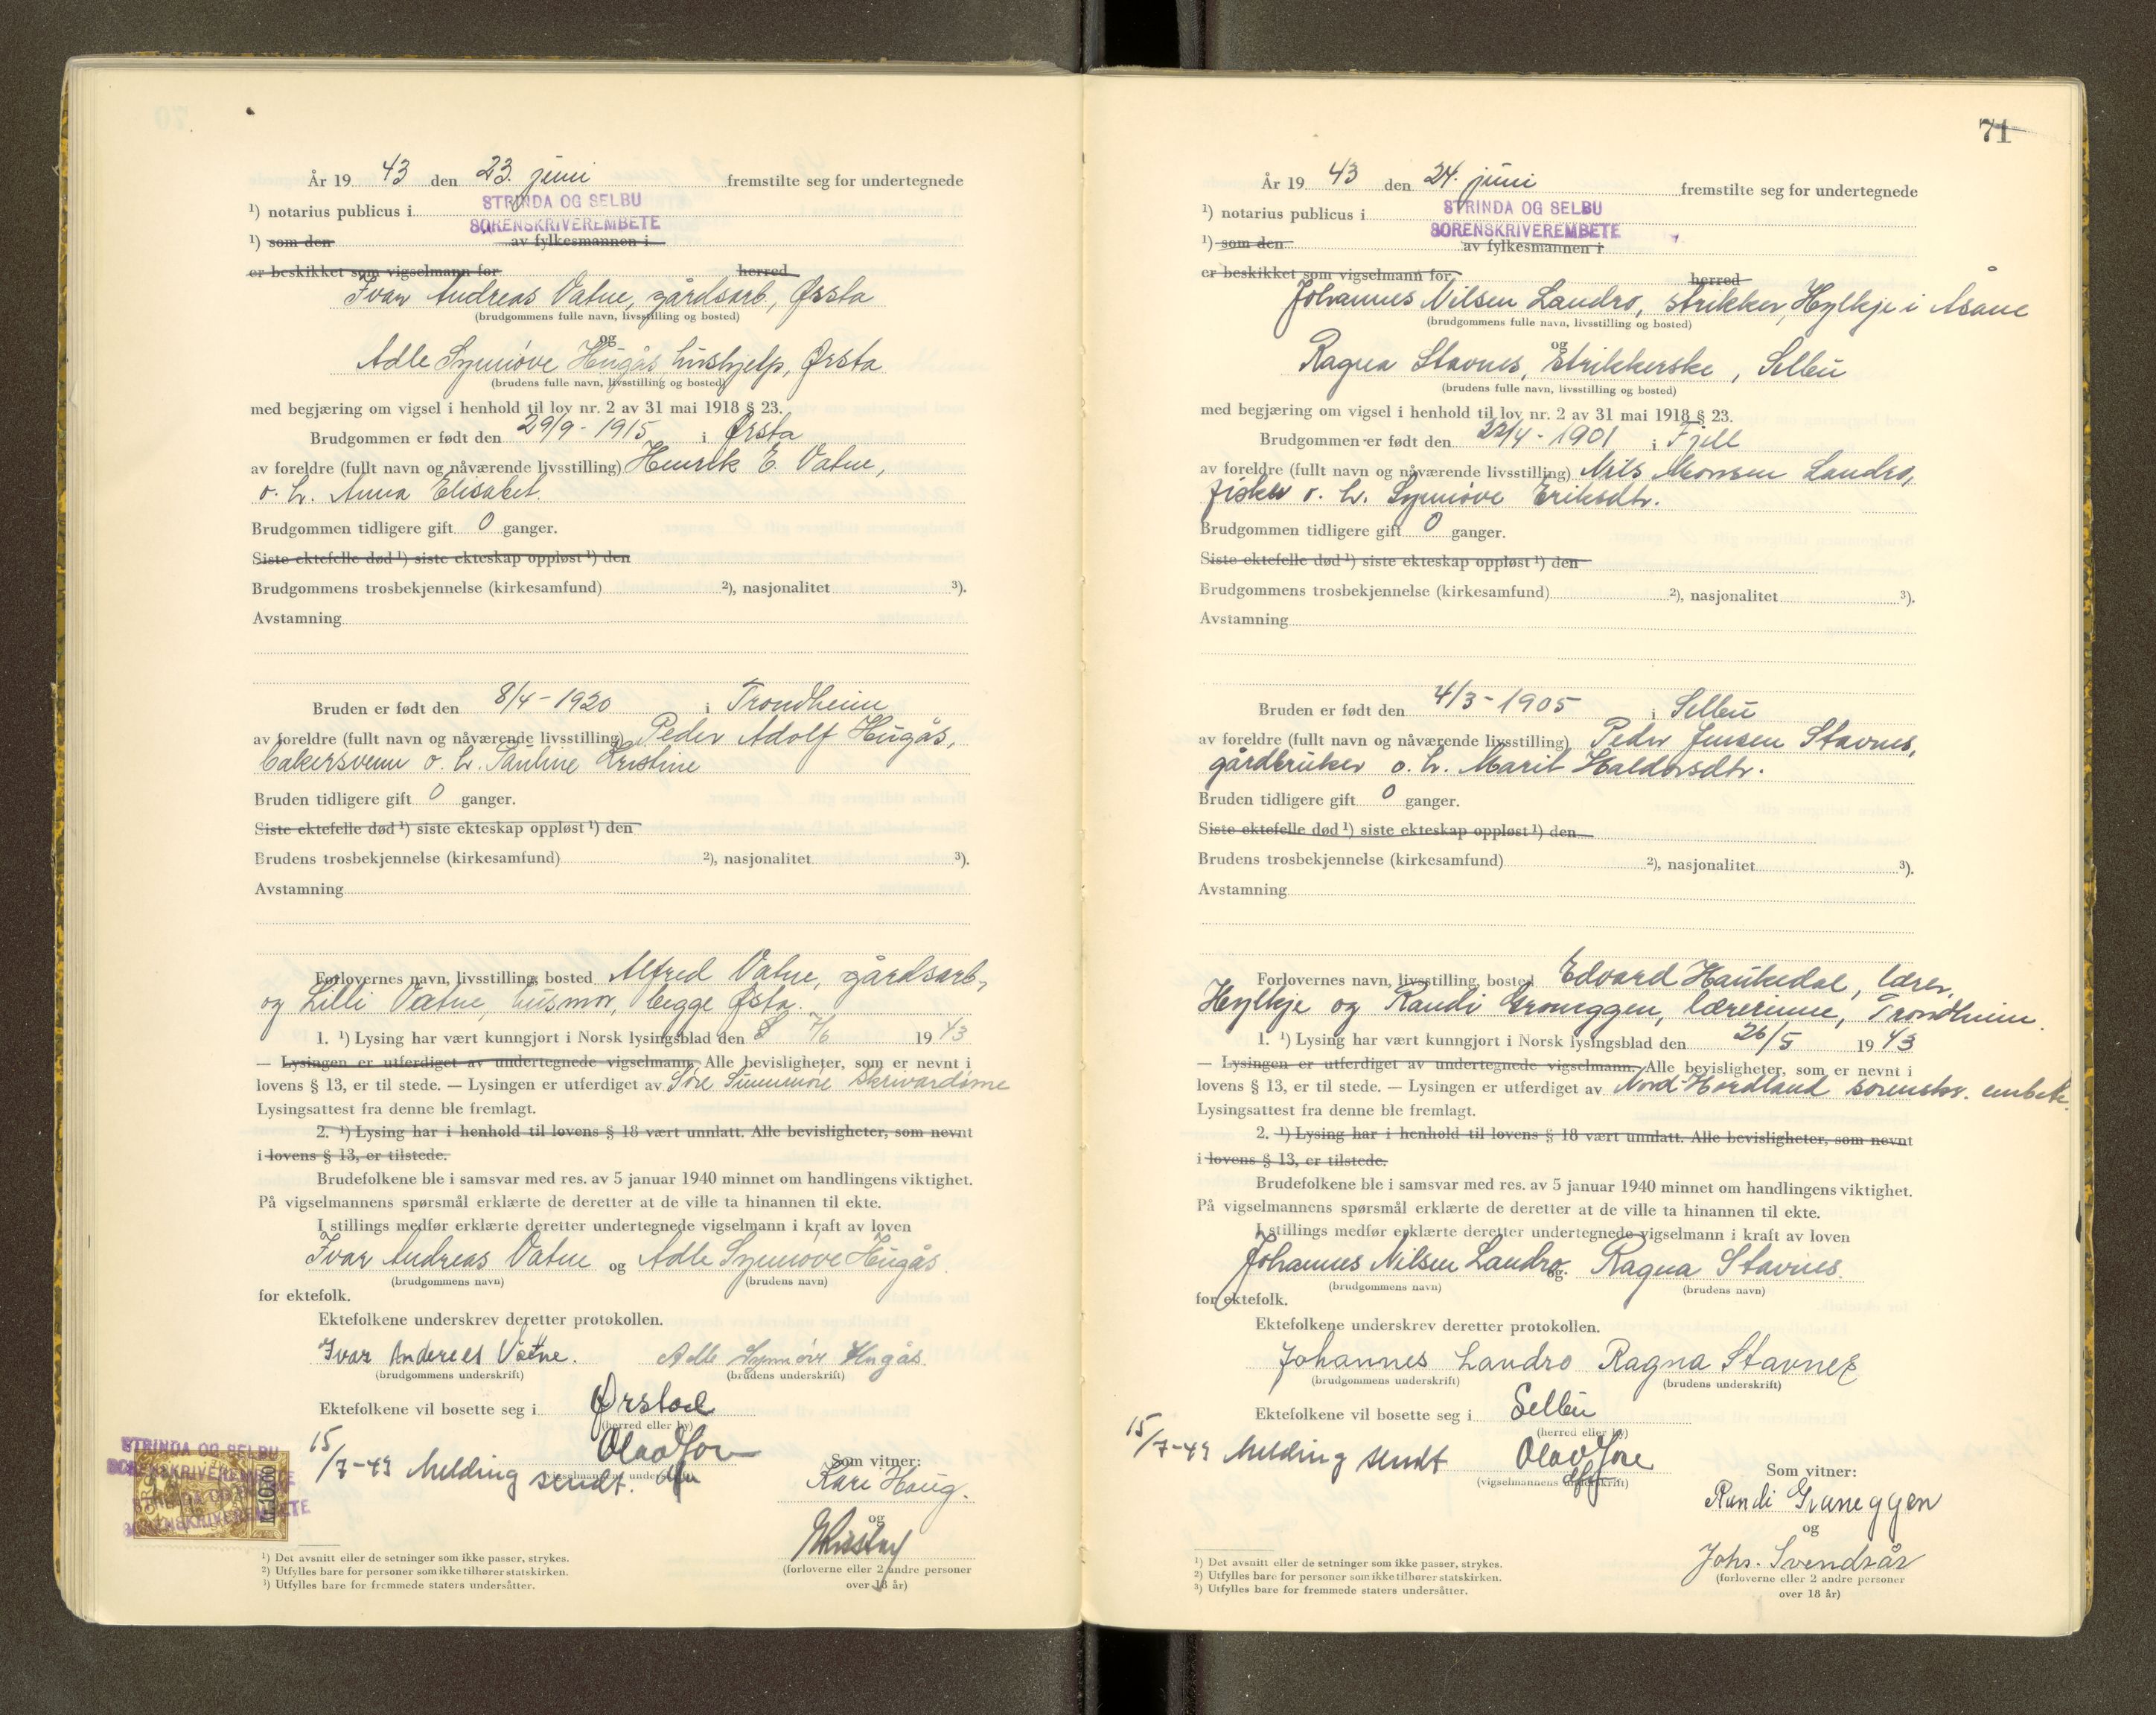 År 19 43 den 23. juni fremstilte seg for undertegnede
¹) notarius publicus i STRINDA OG SELBU
SORENSKRIVEREMBETE
¹) som den av fylkesmannen i
er beskikket som vigselmann for herred
Ivar Andreas Vatne, gårdsarb, Ørsta
(brudgommens fulle navn, livsstilling og bosted)
og
Adle Synnøve Hugås hushjelp, Ørsta
(brudens fulle navn, livsstilling og bosted)
med begjæring om vigsel i henhold til lov nr. 2 av 31 mai 1918 § 23.
Brudgommen er født den 29/9 - 1915 i Ørsta
av foreldre (fullt navn og nåværende livsstilling) Henrik E. Vatne,
o. h. Anna Elisabet.
Brudgommen tidligere gift 0 ganger.
Siste ektefelle død ¹) siste ekteskap oppløst ¹) den
Brudgommens trosbekjennelse (kirkesamfund) ²), nasjonalitet ³).
Avstamning
Bruden er født den 8/4 - 1920 i Trondheim
av foreldre (fullt navn og nåværende livsstilling) Peder Adolf Hugås,
bakersvenn o. h. Pauline Kristine
Bruden tidligere gift 0 ganger.
Siste ektefelle død ¹) siste ekteskap oppløst ¹) den
Brudens trosbekjennelse (kirkesamfund) ²), nasjonalitet ³).
Avstamning
Forlovernes navn, livsstilling, bosted Alfred Vatne, gårdsarb.,
og Lilli Vatne, husmor, begge Ørsta.
1. ¹) Lysing har vært kunngjort i Norsk lysingsblad den 7/6 19 43
— Lysingen er utferdiget av undertegnede vigselmann. Alle bevisligheter, som er nevnt i
lovens § 13, er til stede. — Lysingen er utferdiget av Søre Sunnmøre
Lysingsattest fra denne ble fremlagt.
2. ¹) Lysing har i henhold til lovens § 18 vært unnlatt. Alle bevisligheter, som nevnt
i lovens § 13, er tilstede.
Brudefolkene ble i samsvar med res. av 5 januar 1940 minnet om handlingens viktighet.
På vigselmannens spørsmål erklærte de deretter at de ville ta hinannen til ekte.
I stillings medfør erklærte deretter undertegnede vigselmann i kraft av loven
Ivar Andreas Vatne og Adle Synnøve Hugås.
(brudgommens navn) (brudens navn)
for ektefolk.
Ektefolkene underskrev deretter protokollen.
Ivar Andreas Vatne. Adle Synnøve Hugås.
(brudgommens underskrift) (brudens underskrift)
Ektefolkene vil bosette seg i Ørsta
(herred eller by)
15/7-43 Melding sendt.
(vigselmannens underskrift)
Som vitner:
Kåre Haug.
og
(forloverne eller 2 andre personer
over 18 år)
STRINDA OG SELBU
SORENSKRIVEREMBETE
STRINDA OG SELBU
SORENSKRIVEREMBETE
Kr. 10.00
¹) Det avsnitt eller de setninger som ikke passer, strykes.
²) Utfylles bare for personer som ikke tilhører statskirken.
³) Utfylles bare for fremmede staters undersåtter.
71
År 19 43 den 24. juni fremstilte seg for undertegnede
¹) notarius publicus i STRINDA OG SELBU
SORENSKRIVEREMBETE
¹) som den av fylkesmannen i
er beskikket som vigselmann for herred
Johannes Nilsen Landro, strikker, Hylkje i Åsane
(brudgommens fulle navn, livsstilling og bosted)
og
Ragna Stavnes, strikkerske, Selbu
(brudens fulle navn, livsstilling og bosted)
med begjæring om vigsel i henhold til lov nr. 2 av 31 mai 1918 § 23.
Brudgommen er født den 22/4 - 1901 i Fjell
av foreldre (fullt navn og nåværende livsstilling) Nils Monsen Landro,
fisker o. h. Synnøve Eriksdtr.
Brudgommen tidligere gift 0 ganger.
Siste ektefelle død ¹) siste ekteskap oppløst ¹) den
Brudgommens trosbekjennelse (kirkesamfund) ²), nasjonalitet ³).
Avstamning
Bruden er født den 4/3 - 1905 i Selbu
av foreldre (fullt navn og nåværende livsstilling) Peder Jensen Stavnes,
gårdbruker o. h. Marit Haldorsdtr.
Bruden tidligere gift 0 ganger.
Siste ektefelle død ¹) siste ekteskap oppløst ¹) den
Brudens trosbekjennelse (kirkesamfund) ²), nasjonalitet ³).
Avstamning
Forlovernes navn, livsstilling, bosted Edvard Haukedal, lærer,
Hylkje og Randi Graneggen, lærerinne, Trondheim.
1. ¹) Lysing har vært kunngjort i Norsk lysingsblad den 26/5 19 43
— Lysingen er utferdiget av undertegnede vigselmann. Alle bevisligheter, som er nevnt i
lovens § 13, er til stede. — Lysingen er utferdiget av Nord Hordland sorenskr. embete.
Lysingsattest fra denne ble fremlagt.
2. ¹) Lysing har i henhold til lovens § 18 vært unnlatt. Alle bevisligheter, som nevnt
i lovens § 13, er tilstede.
Brudefolkene ble i samsvar med res. av 5 januar 1940 minnet om handlingens viktighet.
På vigselmannens spørsmål erklærte de deretter at de ville ta hinannen til ekte.
I stillings medfør erklærte deretter undertegnede vigselmann i kraft av loven
Johannes Nilsen Landro. og Ragna Stavnes.
(brudgommens navn) (brudens navn)
for ektefolk.
Ektefolkene underskrev deretter protokollen.
Johannes Landro Ragna Stavnes
(brudgommens underskrift) (brudens underskrift)
Ektefolkene vil bosette seg i Selbu
(herred eller by)
15/7-43 Melding sendt
(vigselmannens underskrift)
Som vitner:
Randi Graneggen
og
Johs. Svendsås
(forloverne eller 2 andre personer
over 18 år)
¹) Det avsnitt eller de setninger som ikke passer, strykes.
²) Utfylles bare for personer som ikke tilhører statskirken.
³) Utfylles bare for fremmede staters undersåtter.